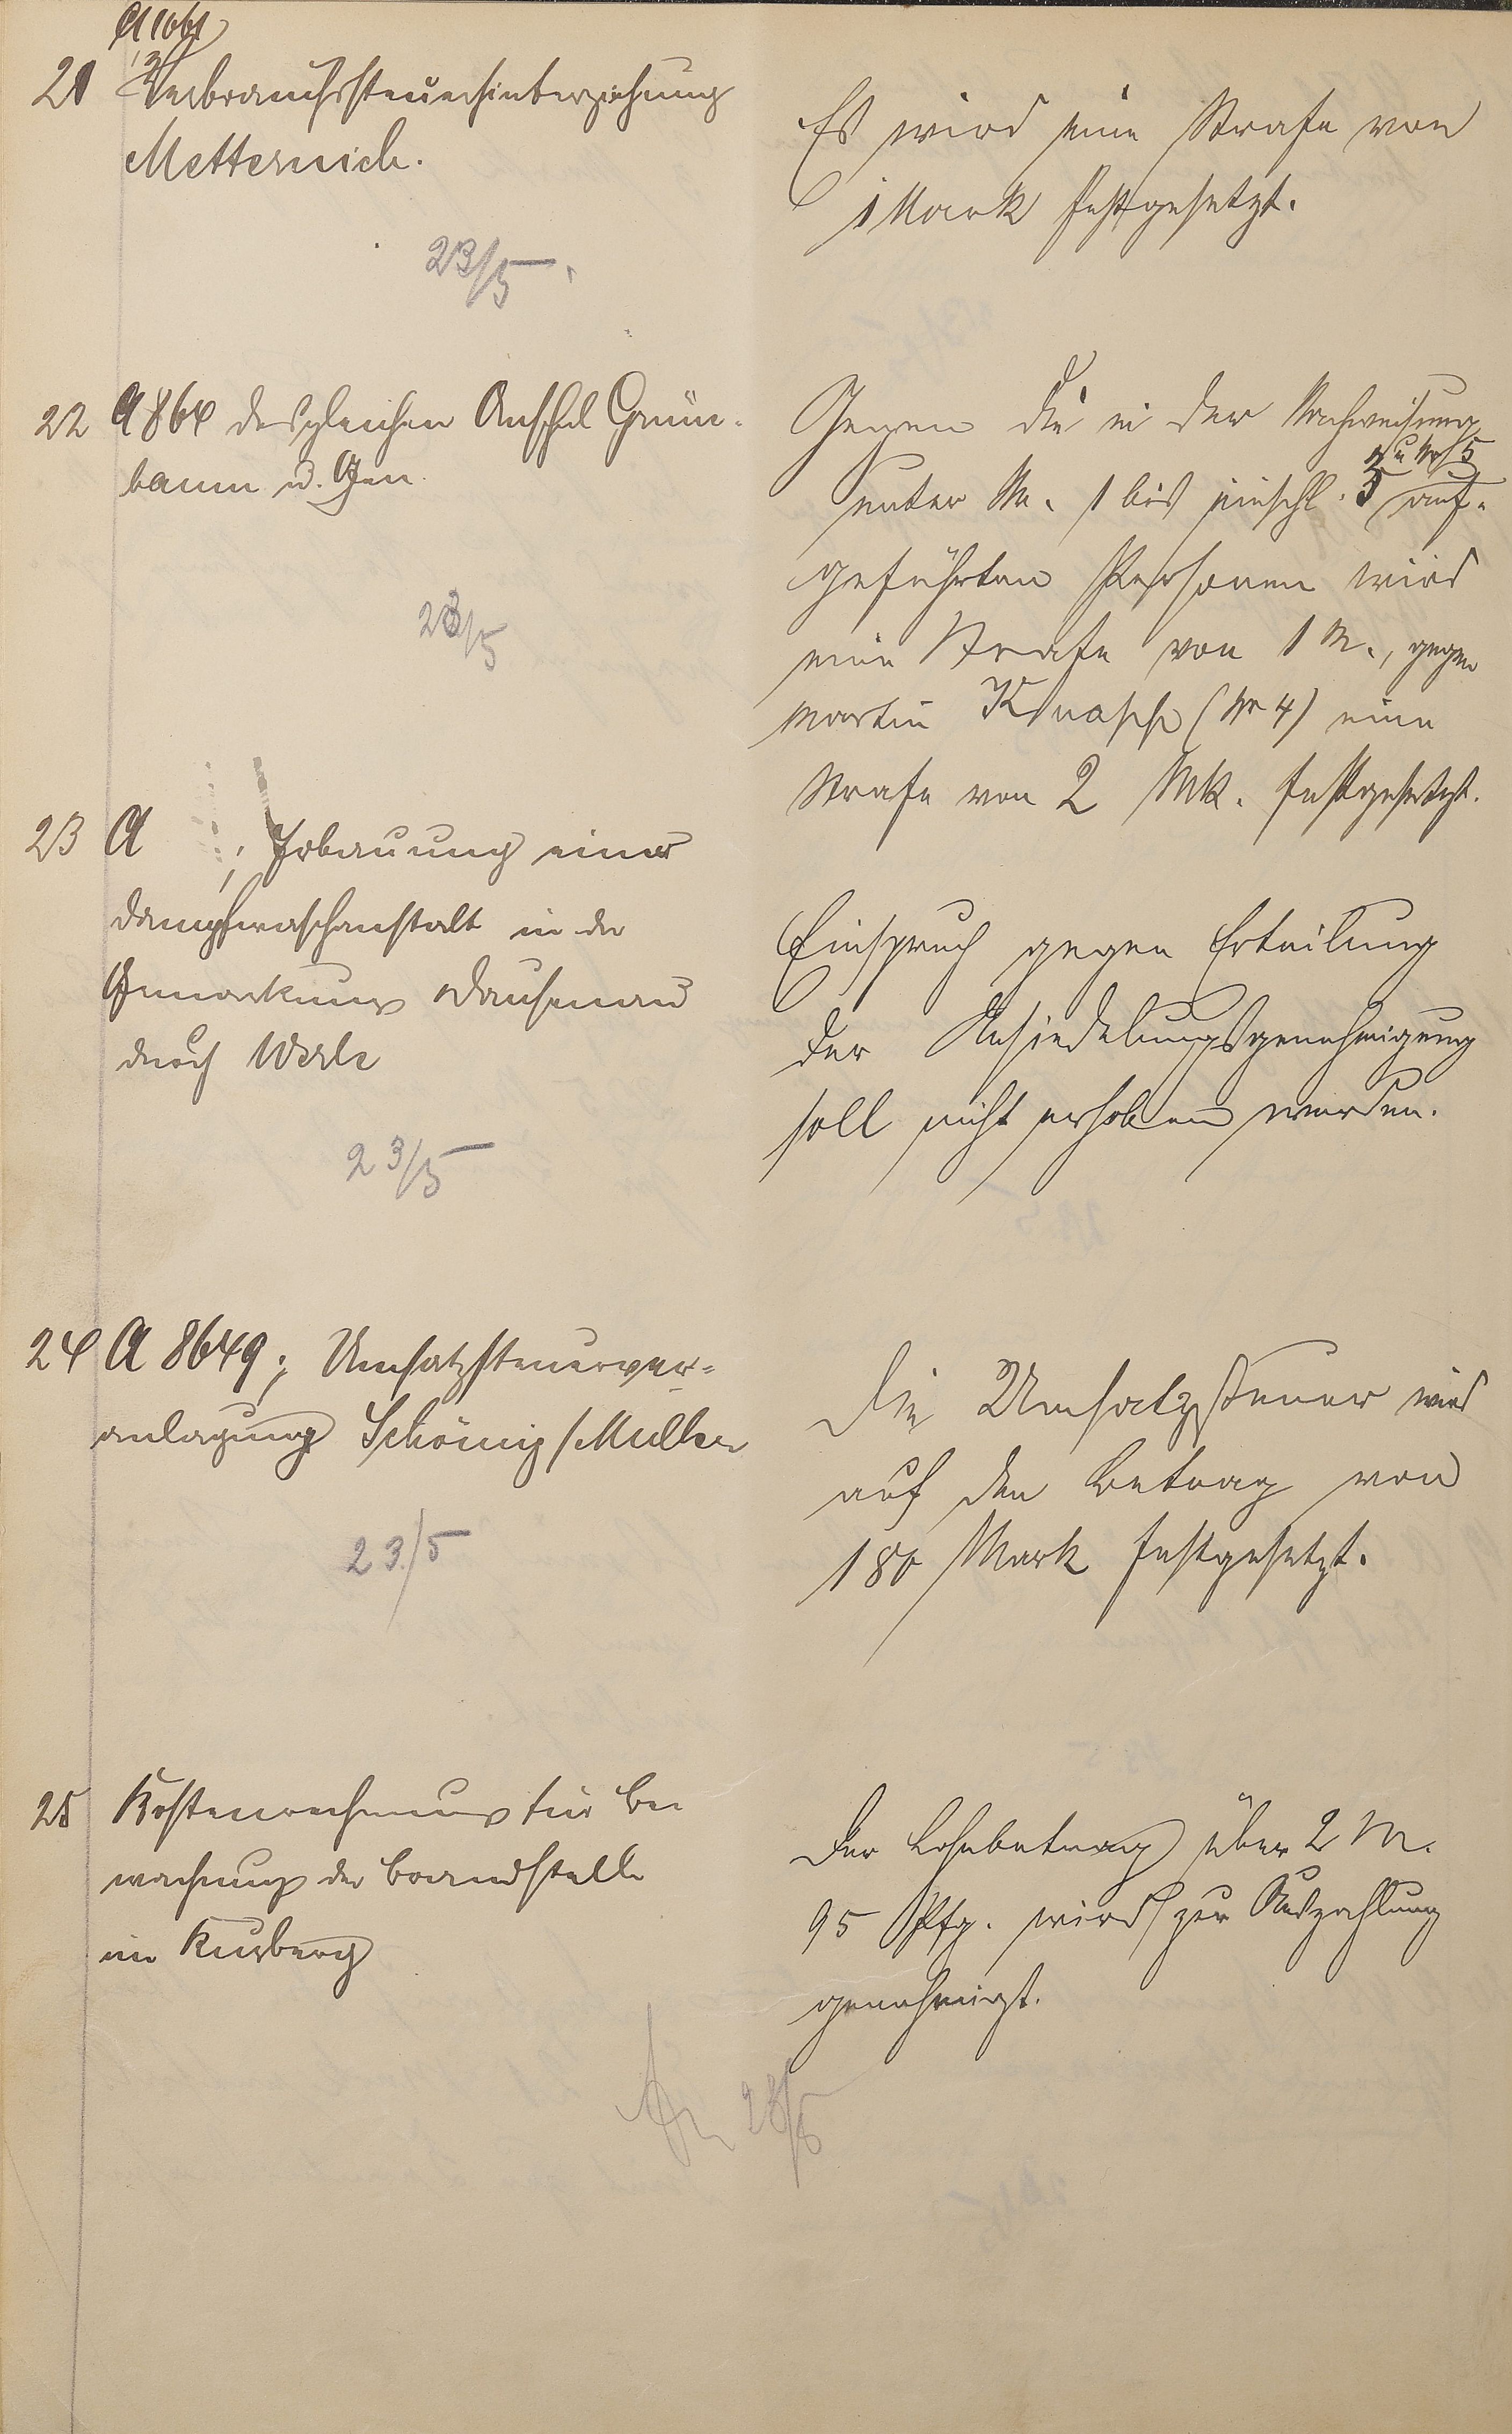 A 1061
21 Verbrauchssteuerhinterziehung
Metternich.
23/5
Es wird eine Strafe von
1 Mark festgesetzt.
22 A 864 desgleichen Anschel Grün-
baum u. Gen.
23/5
Gegen die in der Nachweisung
unter Nr. 1 bis einschl. 3 u Nr 5 auf-
geführten Personen wird
eine Strafe von 1 M., gegen
Martin Knapp (Nr 4) eine
Strafe von 2 Mk. festgesetzt.
23 A ; Erbauung einer
Dampfwaschanstalt in der
Gemarkung Dausenau
durch Werle
23/5
Einspruch gegen Erteilung
der Ansiedelungsgenehmigung
soll nicht erhoben werden.
24 A 8649; Umsatzsteuerver-
anlagung Schönig/Müller
23/5
Die Umsatzsteuer wird
auf den Betrag von
180 Mark festgesetzt.
25 Kostenrechnung für Be
wachung der Brandstelle
im Kirberg
Der Lohnbetrag über 2 M.
95 Pfg. wird zur Auszahlung
genehmigt.
23/5